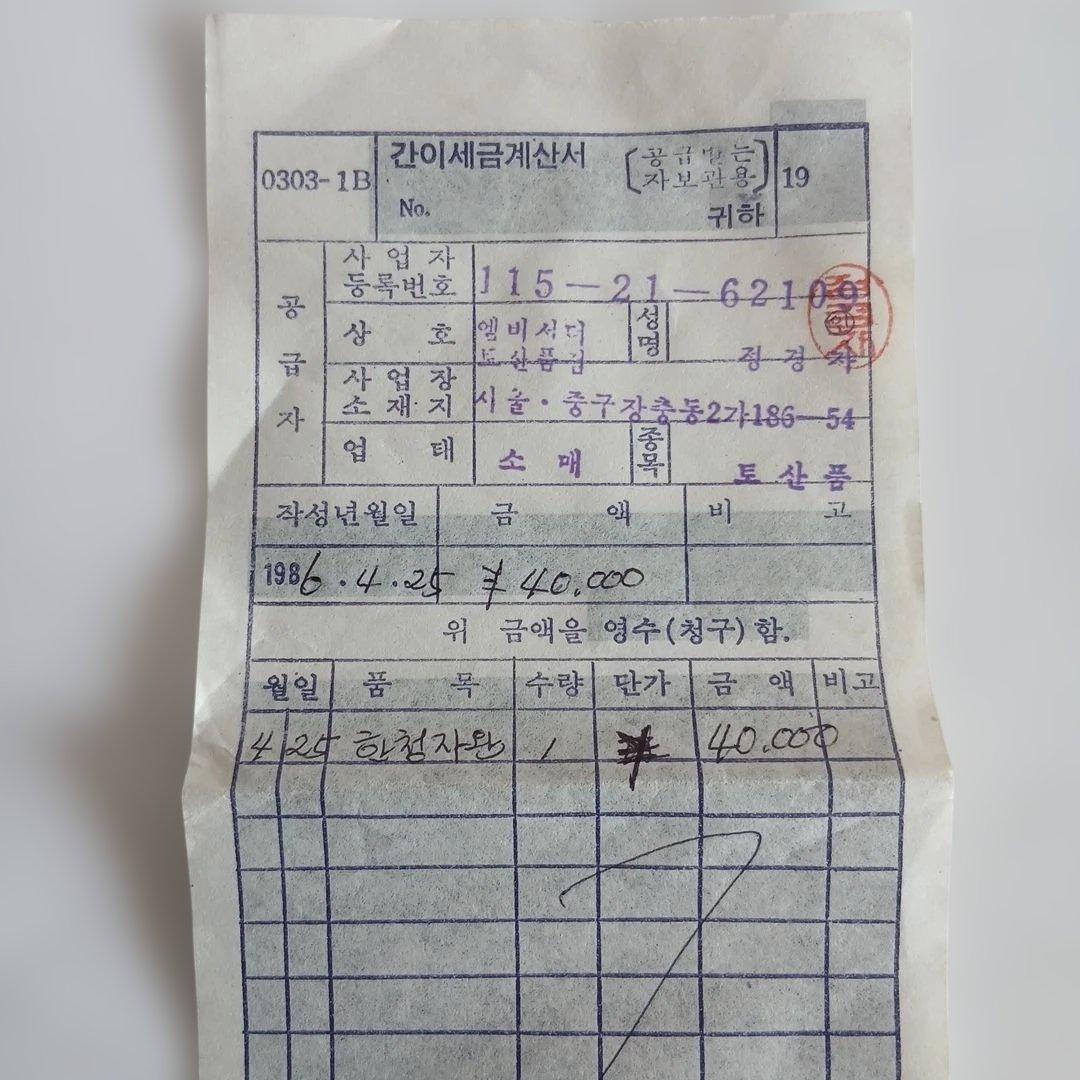 0303-1B 간이세금계산서 (공급받는 자보관용) 19
No. 귀하
공급자
사업자등록번호 115-21-62109
상호 엠비서더 토산품점 성명 정경자
사업장소재지 서울·중구장충동2가186-54
업태 소매 종목 토산품
작성년월일 금액 비고
1986.4.25 ₩40.000
위 금액을 영수(청구)함.
월일 품목 수량 단가 금액 비고
4 25 한청자완 1 40.000